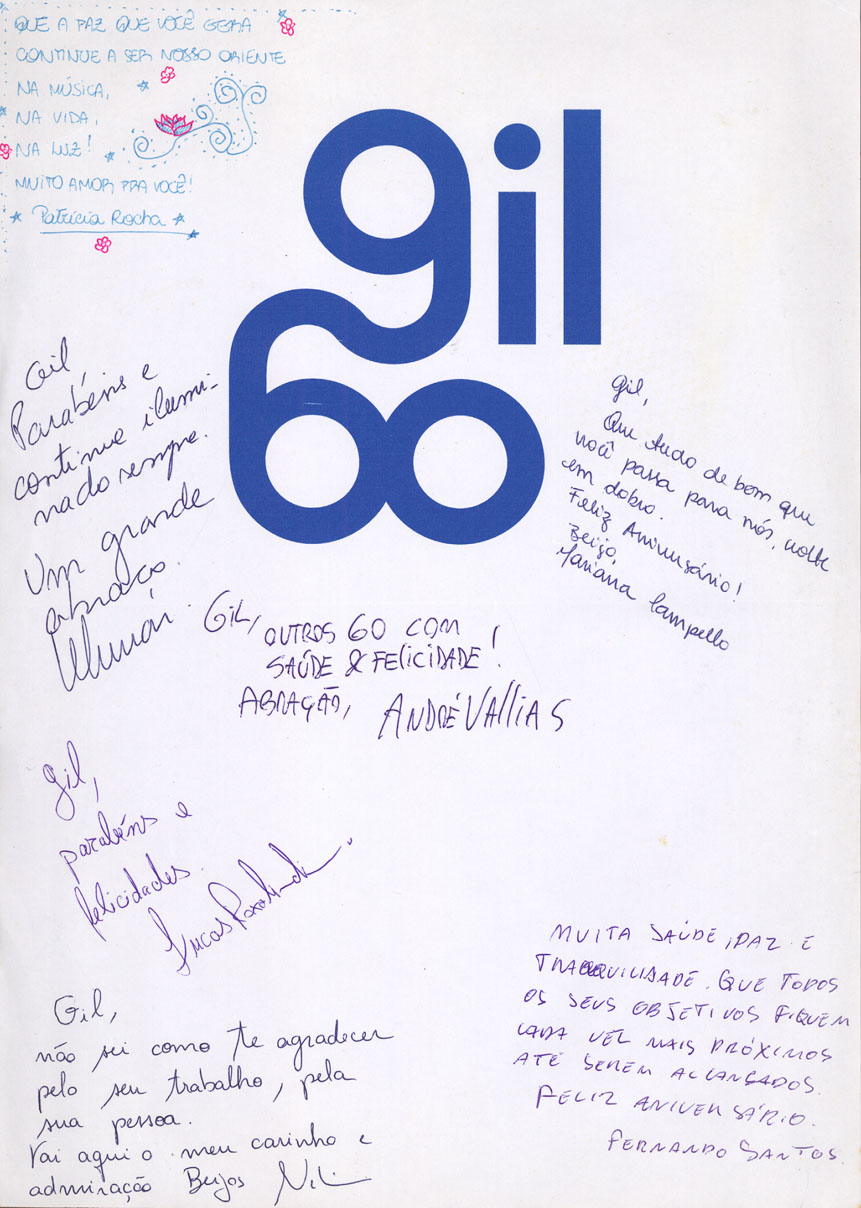 QUE A PAZ QUE VOCÊ GERA
CONTINUE A SER NOSSO ORIENTE
NA MÚSICA,
NA VIDA,
NA LUZ!
MUITO AMOR PRA VOCÊ!
Patrícia Rocha
gil
60
Gil
Parabéns e
continue ilumi-
nado sempre.
Um grande
abraço.
gil,
Que tudo de bom que
você passa para nós, volte
em dobro.
Feliz Aniversário!
Beijo,
Mariana Campello
GIL,
OUTROS 60 COM
SAÚDE & FELICIDADE!
ABRAÇÃO,
ANDRÉ VALLIAS
gil,
parabéns e
felicidades.
Lucas
MUITA SAÚDE, PAZ E
TRANQUILIDADE. QUE TODOS
OS SEUS OBJETIVOS FIQUEM
CADA VEZ MAIS PRÓXIMOS
ATÉ SEREM ALCANÇADOS.
FELIZ ANIVERSÁRIO.
FERNANDO SANTOS
Gil,
não sei como te agradecer
pelo seu trabalho, pela
sua pessoa.
Vai aqui o meu carinho e
admiração Beijos